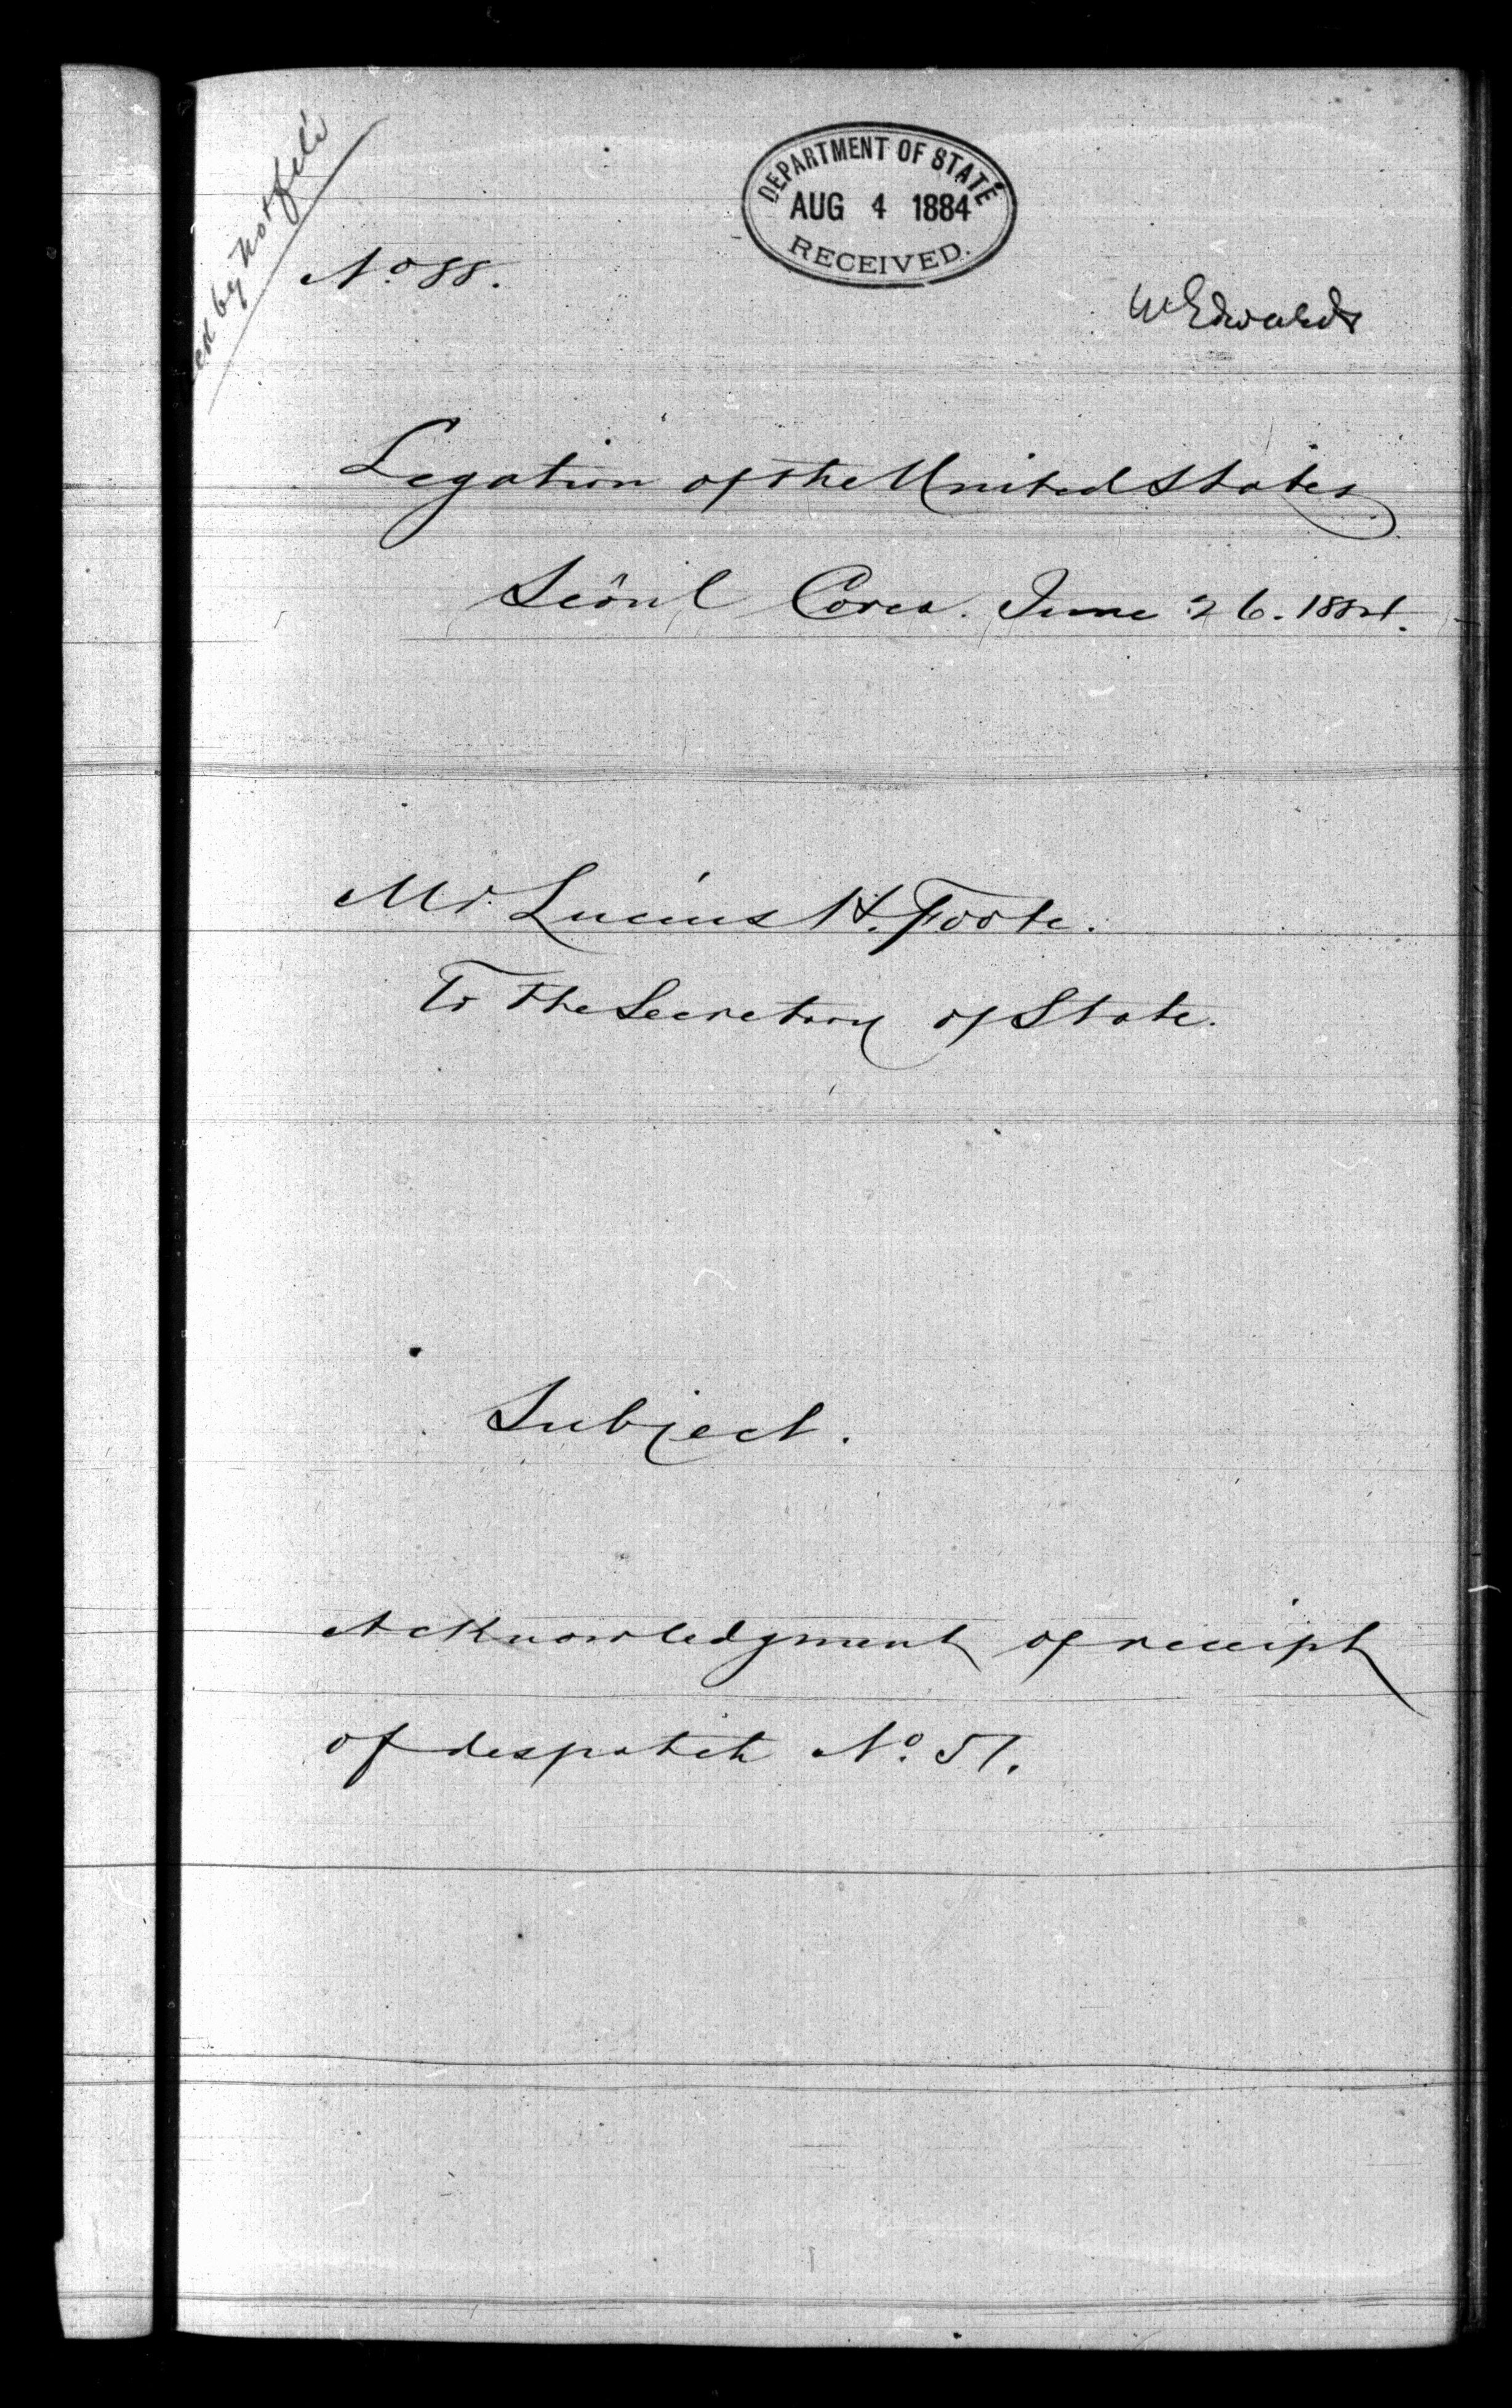 DEPARTMENT OF STATE
AUG 4 1884
RECEIVED.
by
No 88.
Legation of the United States
Seôul Corea. June 26. 1884.
Mr. Lucius H. Foote.
To the Secretary of State.
Subject.
Acknowledgment of receipt
of despatch No. 51.